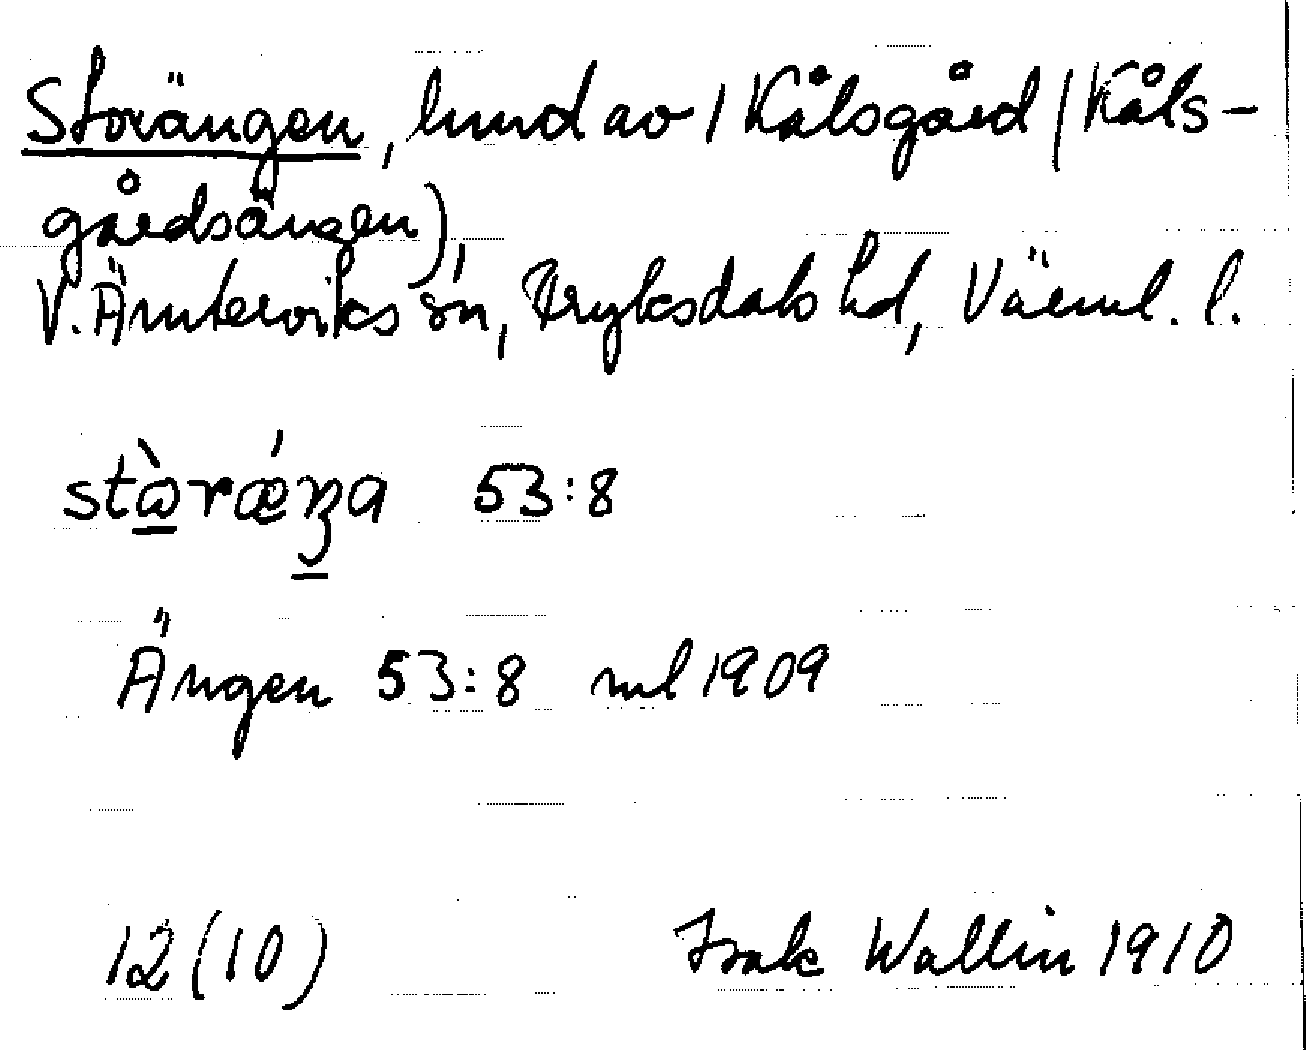 Storängen, lund av 1 Kålsgård (Kåls-
gårdsängen),
V. Ämterviks sn, Fryksdals hd, Värml. l.
53:8
Ängen 53:8 ml 1909
12 (10) Isak Wallin 1910